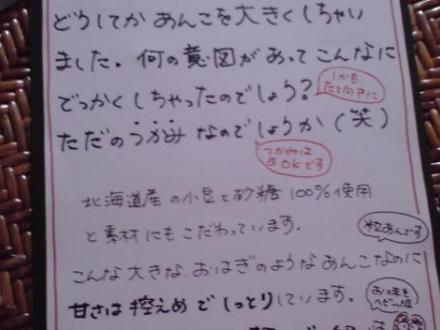 どうしてか あんこを大きくしちゃい
ました。何の意図があってこんなに
でっかくしちゃったのでしょう?
しかも
たて向きに
ただのつかみなのでしょうか(笑)
つかみは
OKです
北海道産の小豆と砂糖100%使用
と素材にもこだわっています。
粒あんです
こんな大きな おはぎのようなあんこなのに
甘さは控えめでしっとりしています。